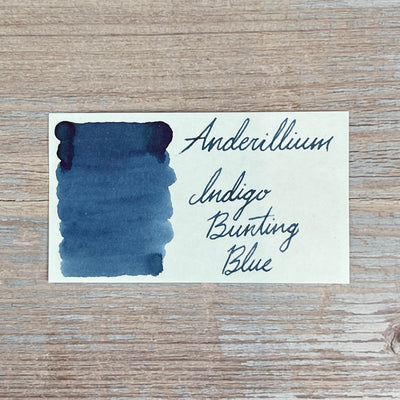 Anderillium
Indigo
Bunting
Blue